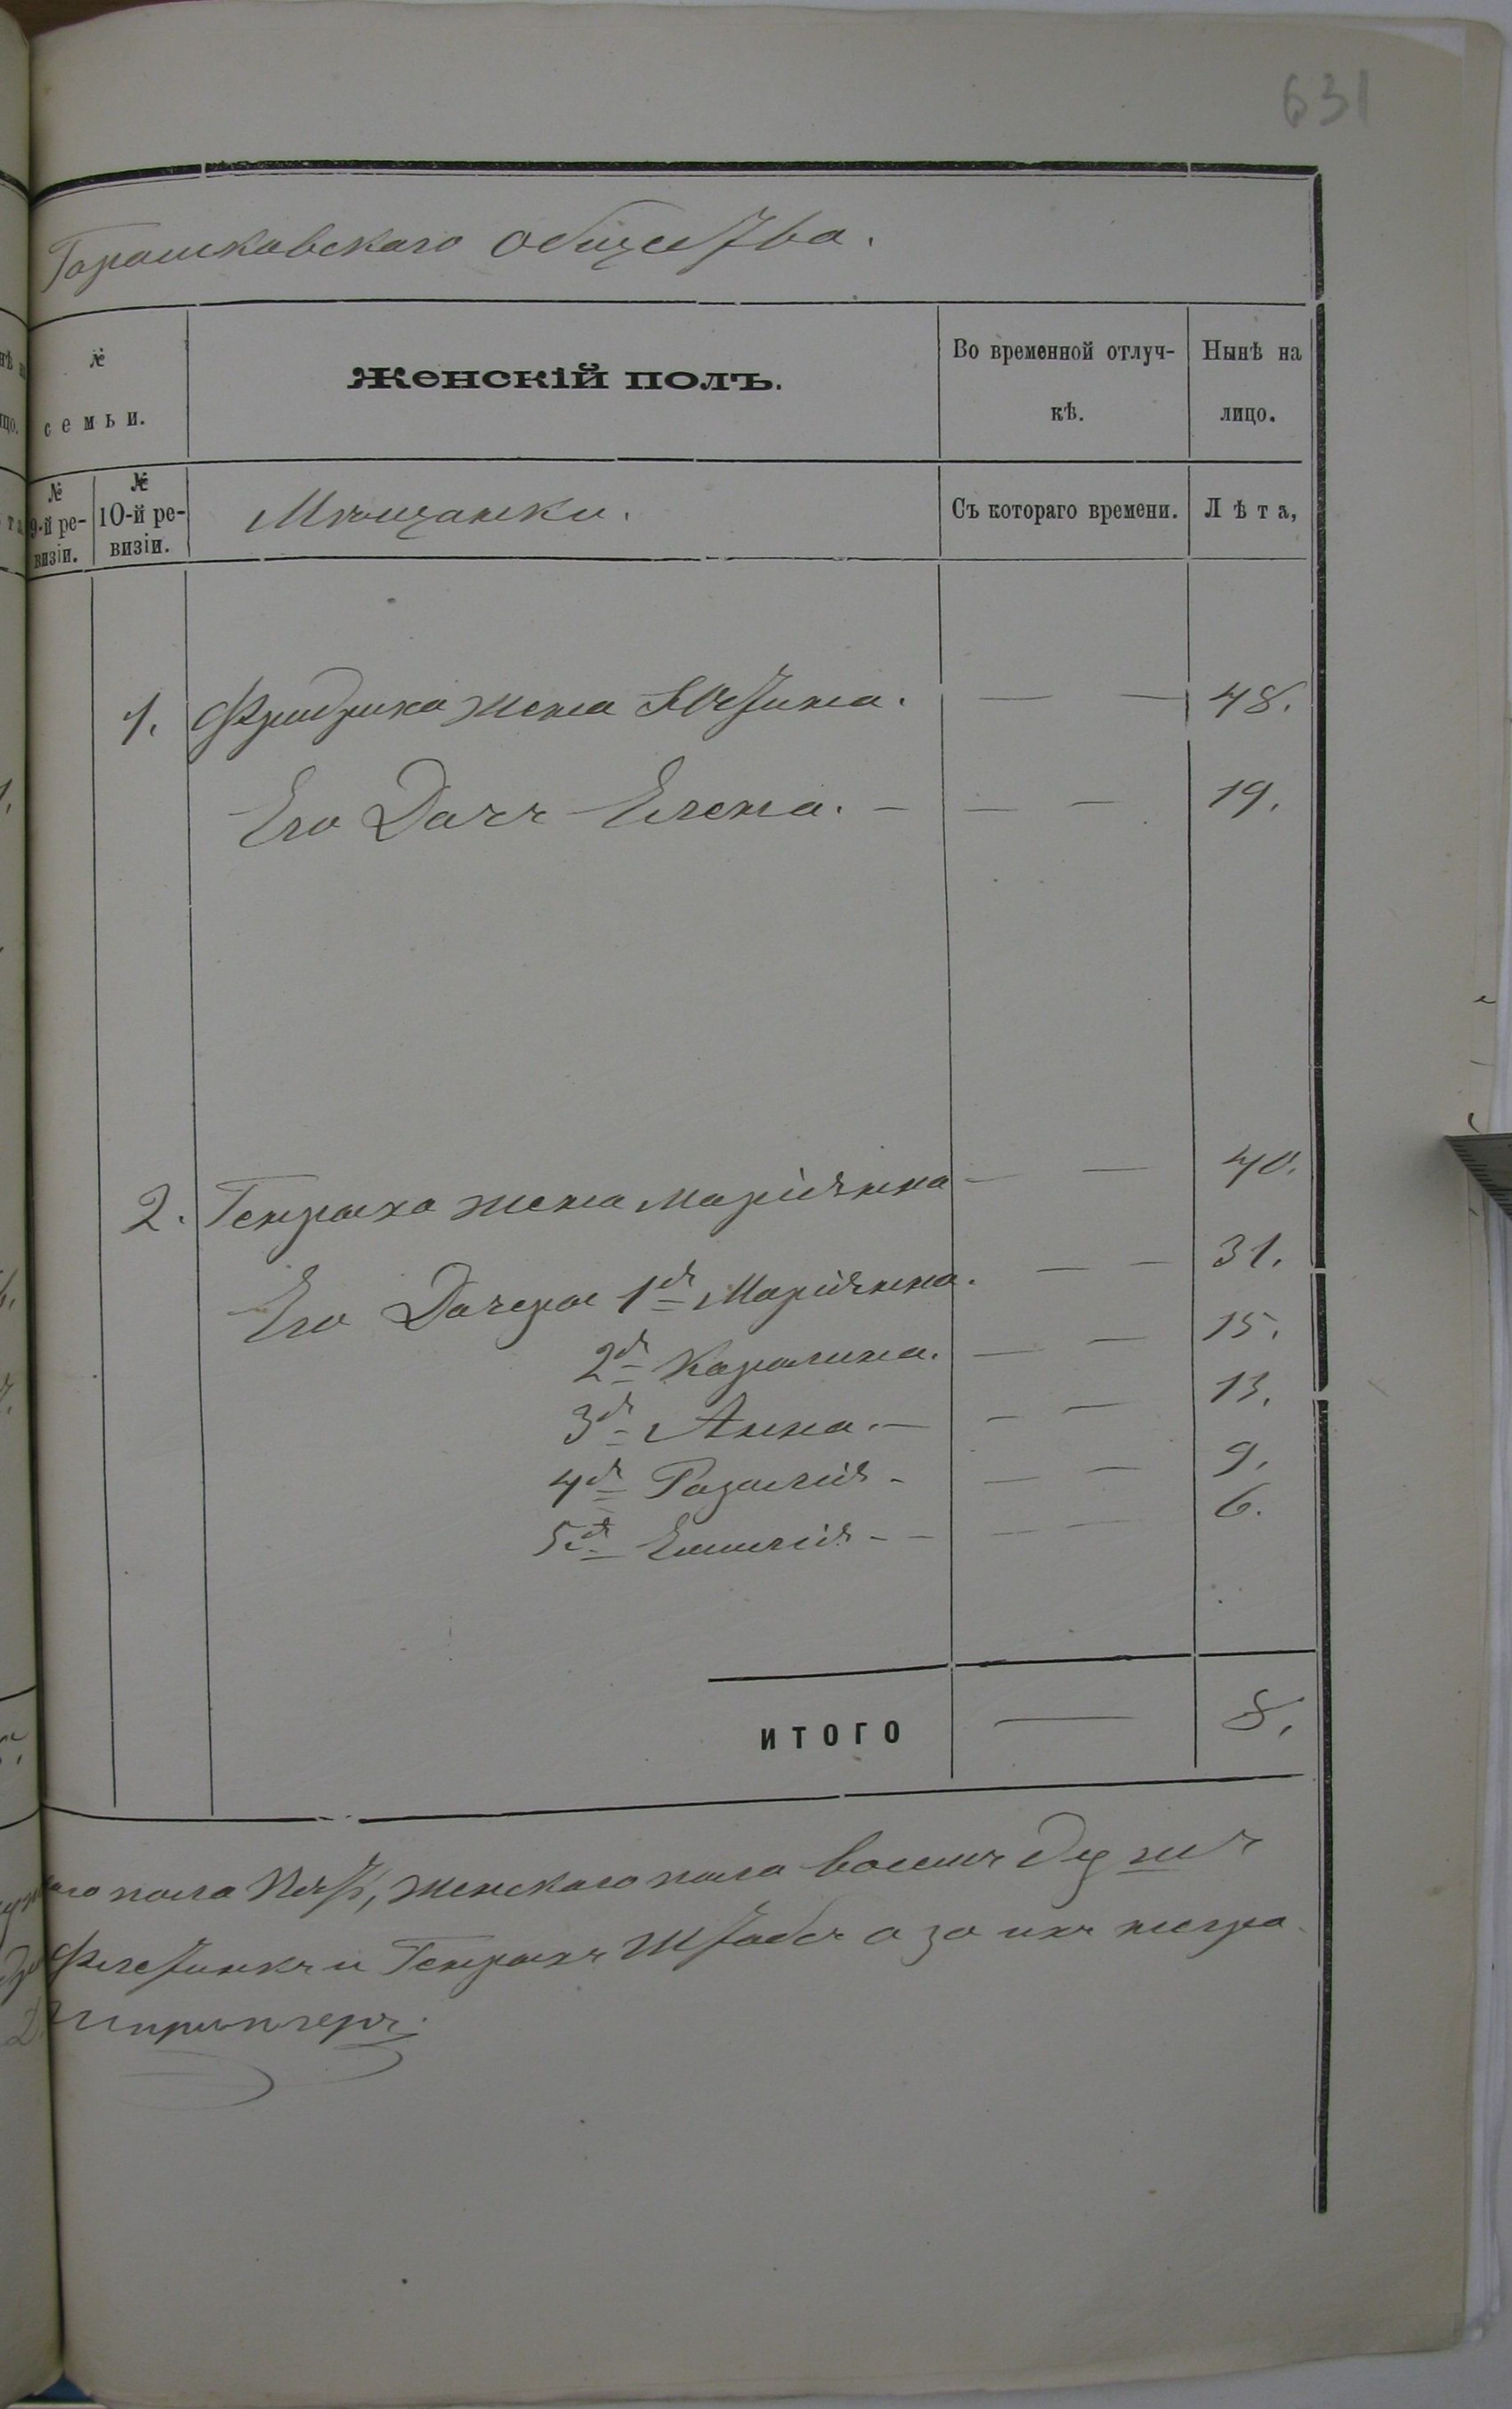 631
Горошковскаго общества.
№ семьи.
Женскій полъ.
Во временной отлучкѣ.
Нынѣ на лицо.
№ 9-й ревизіи.
№ 10-й ревизіи.
Мѣщанки.
Съ котораго времени.
Лѣта,
1. Фридриха жена Юстина. — — 48.
Его Дочь Елена. — — — 19.
2. Генрыха жена Маріянна — — 40.
Его Дочеры 1я Маріянна. — — 31.
2я Каралина. — — 15.
3я Анна. — — — 13.
4я Розалія - — — 9.
5я Емилія - - — — 6.
ИТОГО — 8.
пола Пять, женскаго пола восемь душъ
и Генрыхъ Штабъ а за ихъ негра